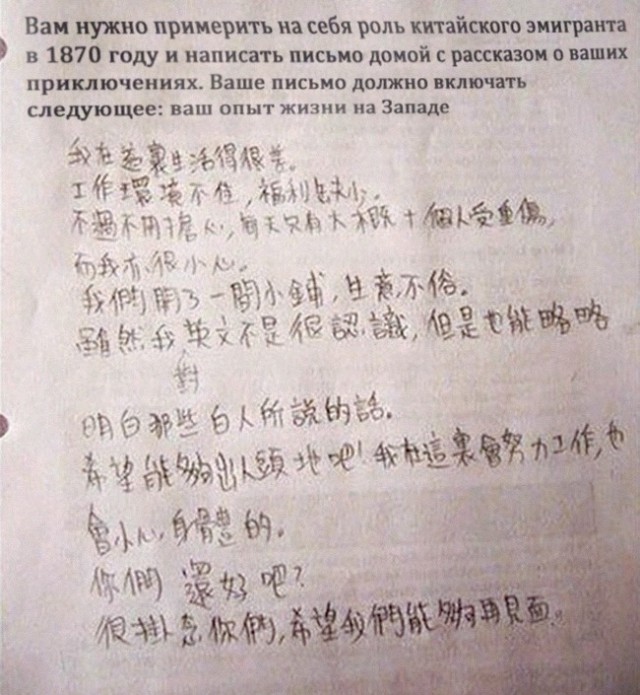 Вам нужно примерить на себя роль китайского эмигранта
в 1870 году и написать письмо домой с рассказом о ваших
приключениях. Ваше письмо должно включать
следующее: ваш опыт жизни на Западе
我在這裏生活得很差。
工作環境不佳,福利缺少。
不過不用擔心,每天只有大概十個人受重傷,
而我亦很小心。
我們開了一間小鋪,生意不俗。
雖然我英文不是很認識,但是也能略略
對
明白那些白人所說的話。
希望能夠出人頭地吧!我在這裏會努力工作,也
會小心身體的。
你們 還好吧?
很掛念你們,希望我們能夠再見面。